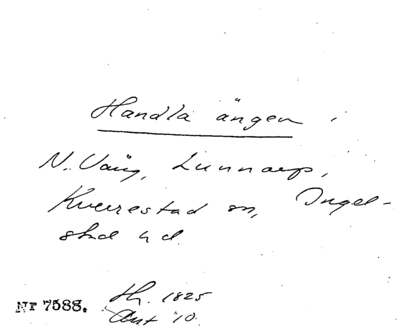 Handla ängen
N. Vång, Lunnarp,
Kverrestad sn, Ingel-
stad hd.
Nr 7588. Th. 1825
Akt 10